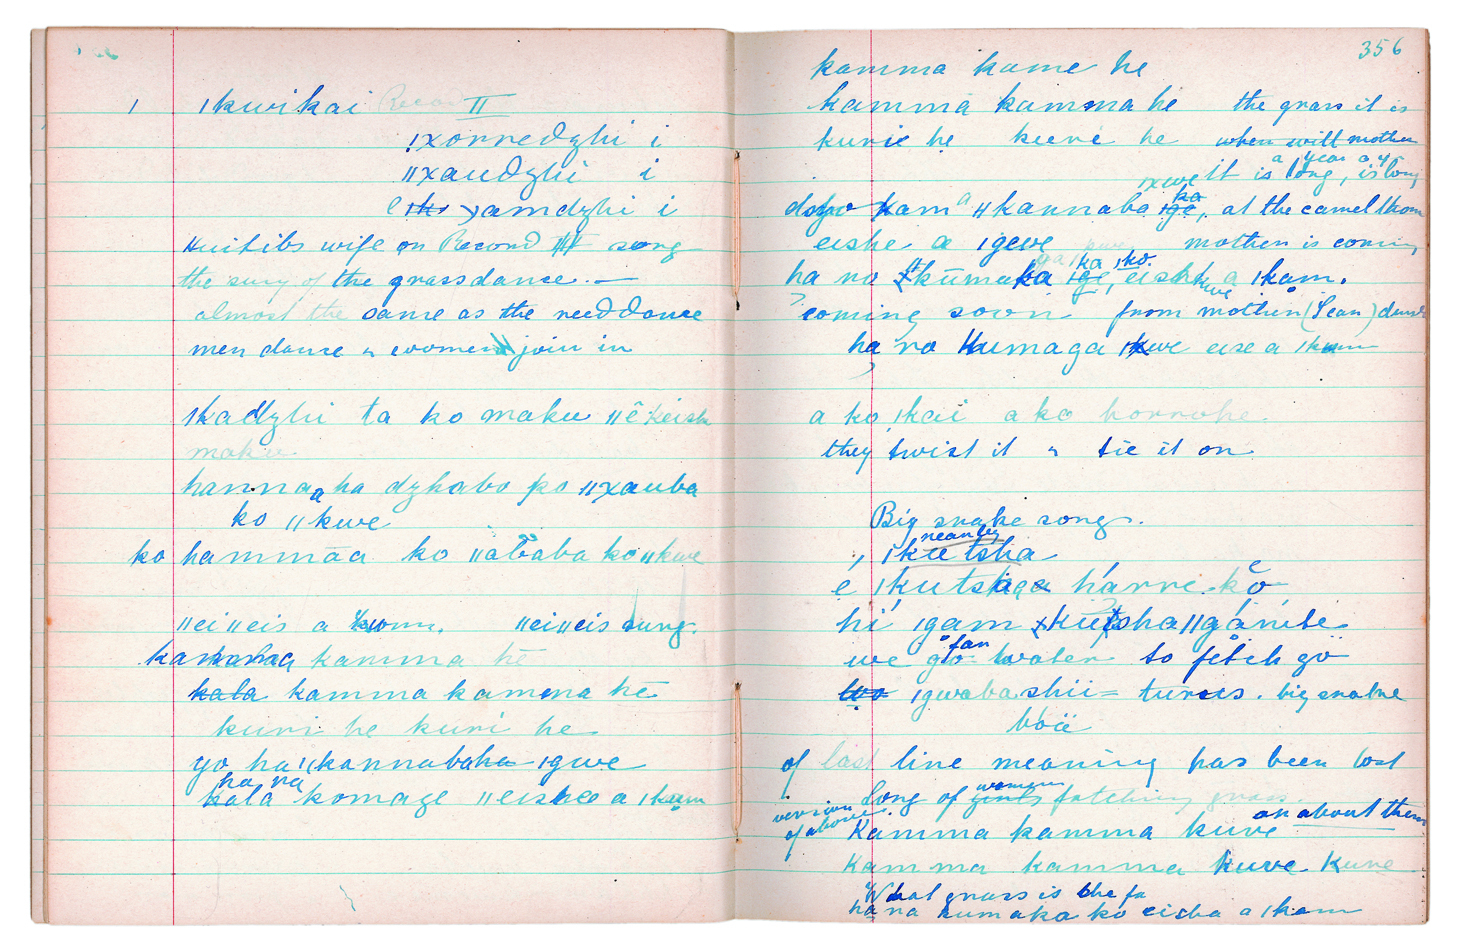 1 ǀkwikai Record II
ǃxorredzhi i
ǁxaudzhi i
ǀko xamdzhi i
ǁuitibs wife on Record III song
the song of the grassdance. —
almost the same as the reeddance
men dance & women join in
ǀkadzhi ta ko maku ǁē keisha
maku
hanna a ha dzhabo ko ǁxauba
ko ǁkwe
ko hammāa ko ǁaBaba ko ǁkwe
ǁeiǁeis a ǁeiǁeis sung.
kamma hē
kala kamma kamma hē
kuri he kuri he
yo ha ǁkannabaha ǀgwe
ha na
kala komage ǁeishee a ǀkum
356
kamma kame he
kamma kamma he the grass it is
kurie he kuri he when will mother
a year a y
ǀxwe it is long, is long
kam a ǁkannaba ǀge, ka at the camel thorn
eishe a ǀgewe mother is coming
ka ǀka ǀko
ha na kūmaka ǀge, eisha a ǀkam.
coming soon from mother (Sean)
ha na kumaga ǀkwe eise a ǀkum
a ko ǀkai a ko horrohe.
they twist it & tie it on
Big snake song.
nearby
, ǀkutsha
e ǀkutshaga hárre kŏ
hí ǀgam kūtsha ǁgáníbe
fan
we go water to fetch go
two ǀgwabashii = turus. big snake
boië
of last line meaning has been lost
women
Song of girls fetching grass.
version
of above.
on about them
Kamma kamma kuve
kamma kamma kuve kuve
What grass is the fa
ha na kumaka ko eisha a ǀkam